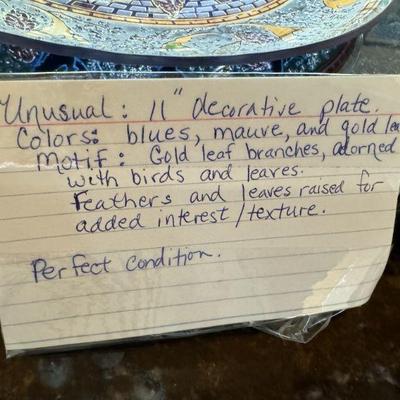 Unusual: 11" decorative plate.
Colors: blues, mauve, and gold lea
Motif: Gold leaf branches, adorned
with birds and leaves.
Feathers and leaves raised for
added interest/texture.
Perfect condition.